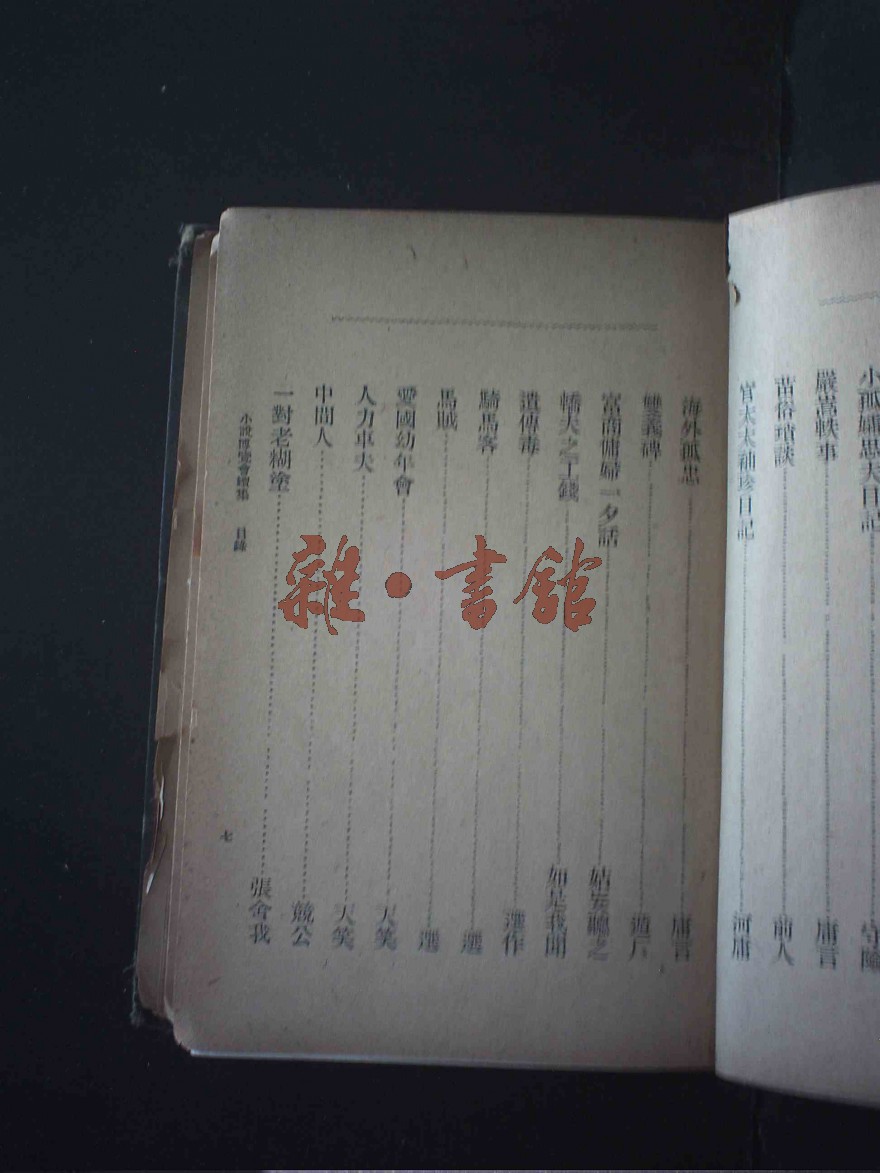 小孤孀思夫日記 守隆
嚴嵩軼事 庸言
苗俗瑣談 前人
官太太袖珍日記 河庸
海外孤忠 庸言
雙義碑 週片
富商傭婦一夕話 姑妄聽之
轎夫之工錢 如是我聞
遺傳毒 選作
騎馬客 選
馬賊 選
愛國幼年會 天笑
人力車夫 天笑
中間人 兢公
一對老糊塗 張舍我
小說博覽會續集 目錄
七
雜·書館